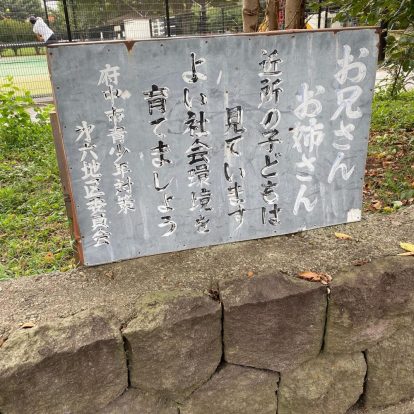 お兄さん
お姉さん
近所の子どもは
見ています
よい社会環境を
育てましょう
府中市青少年対策
第六地区委員会